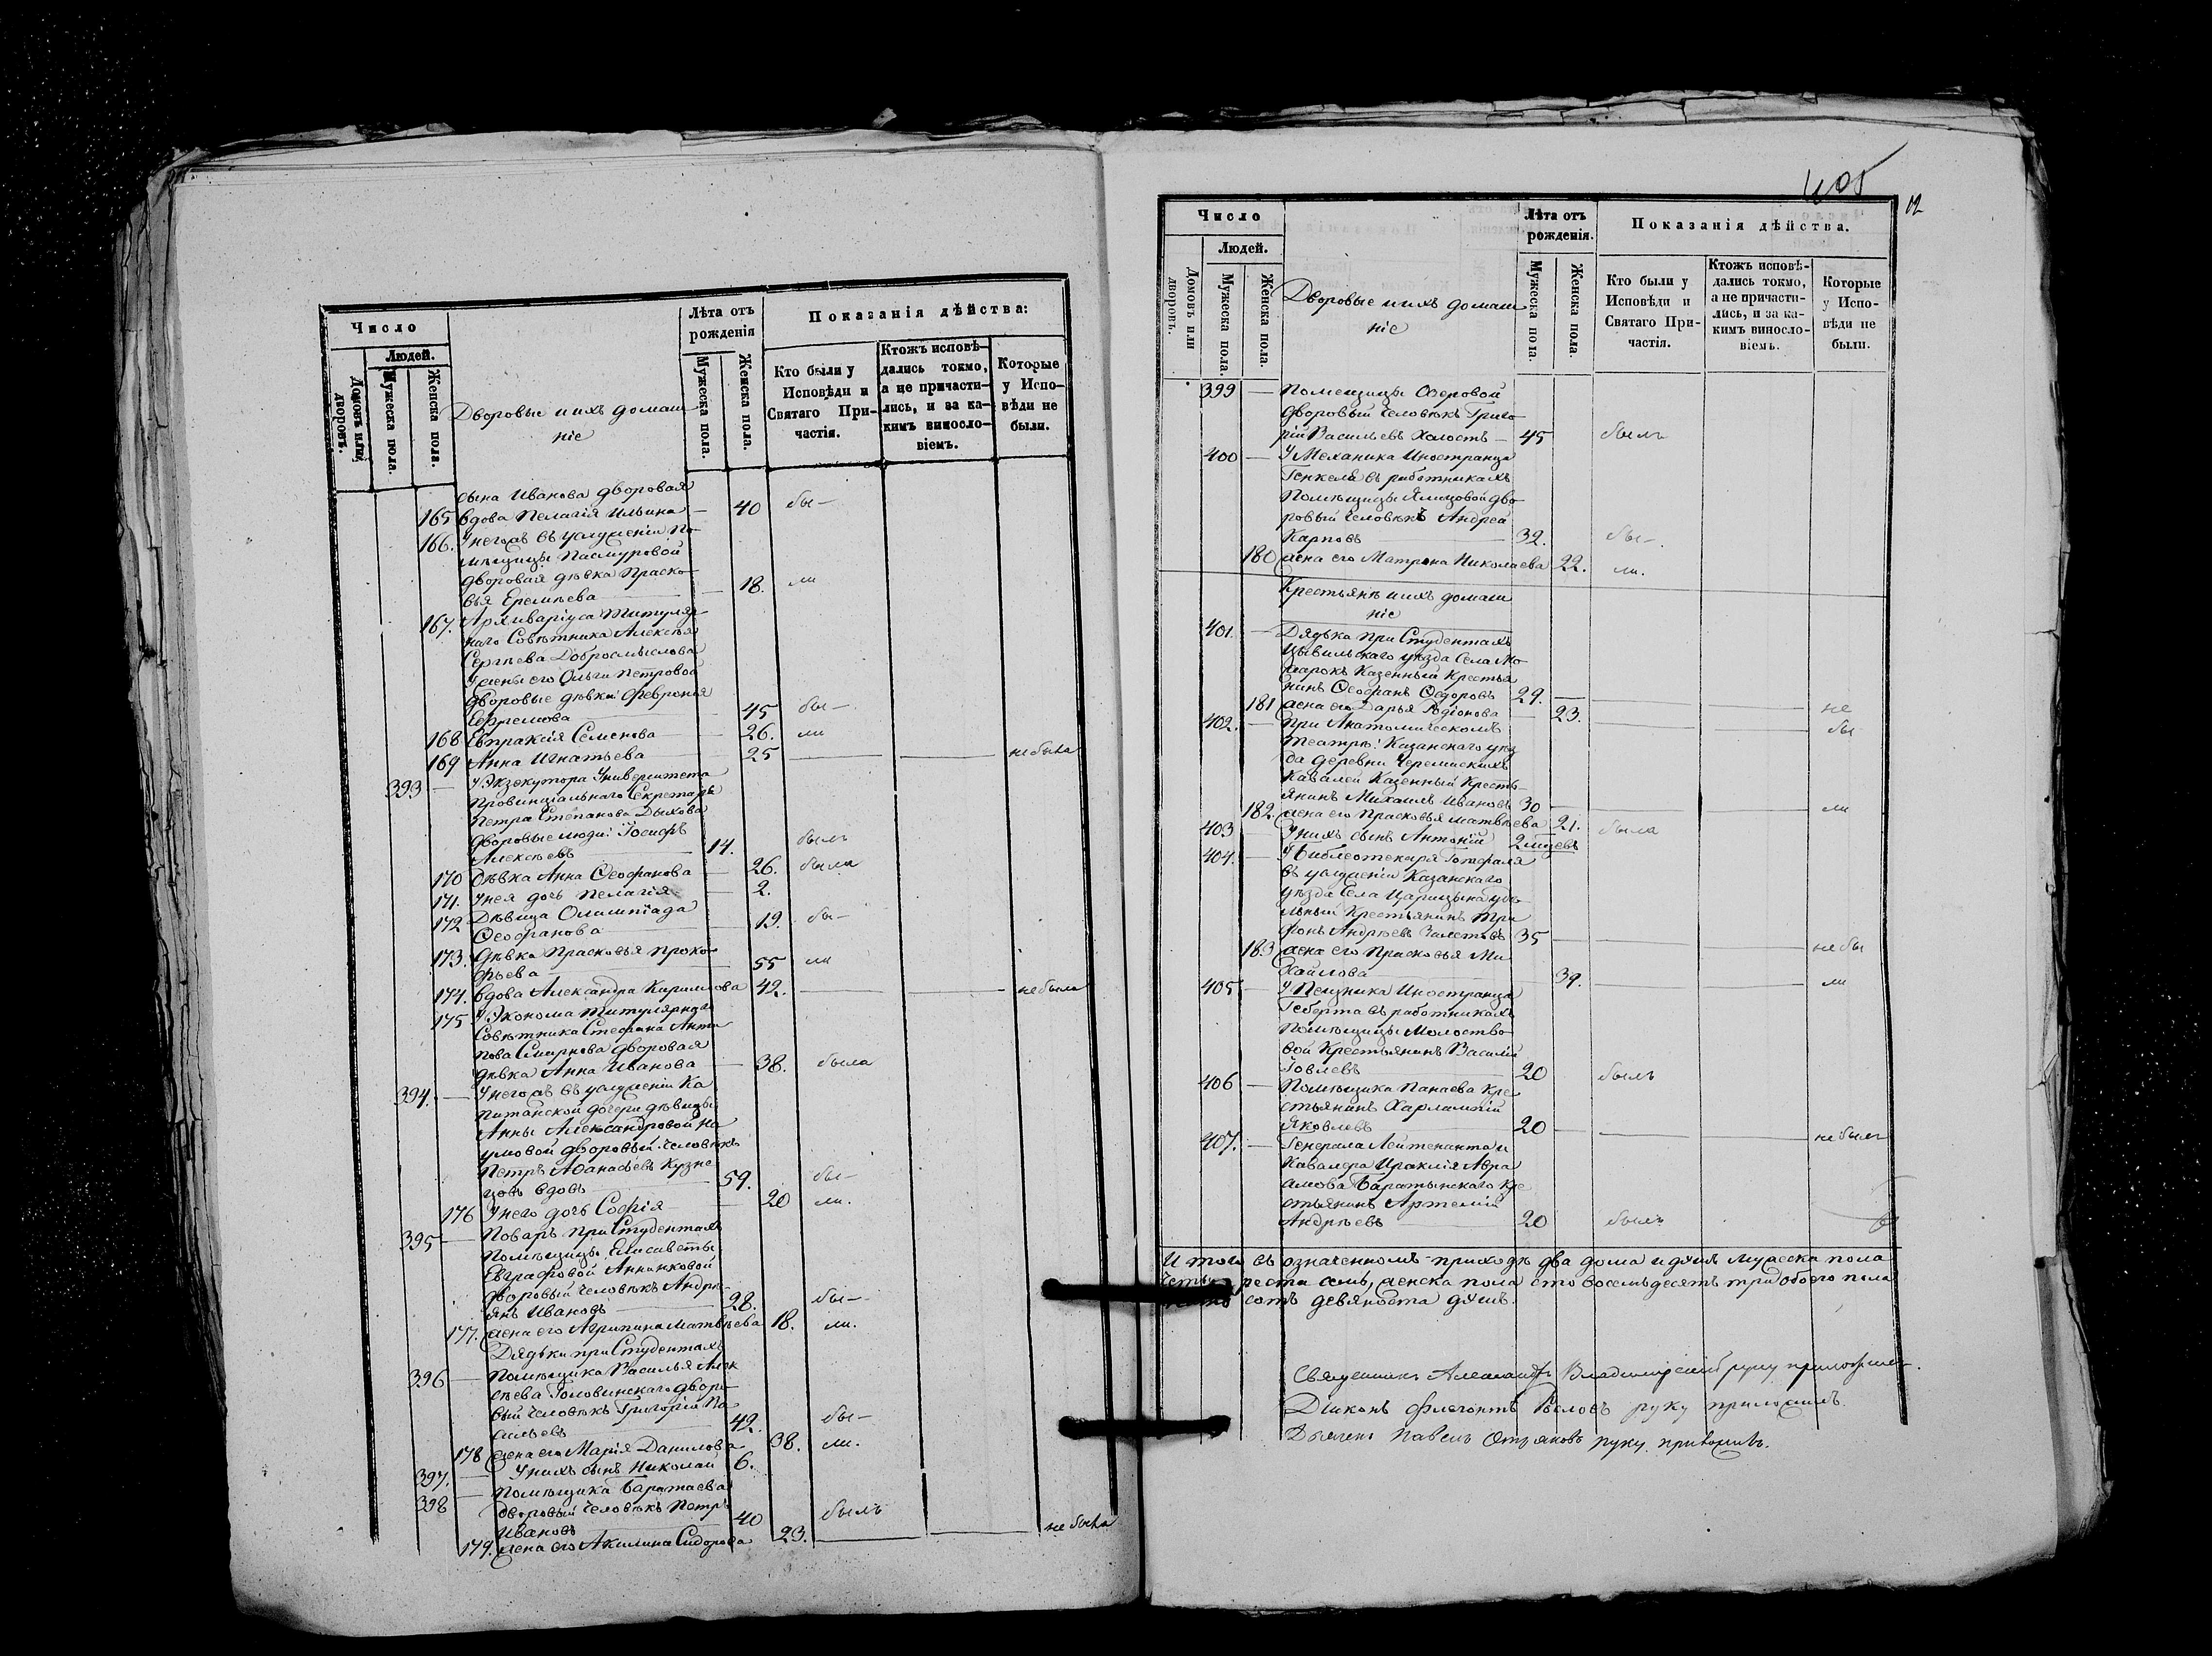 Число
Людей.
Домовъ или дворовъ.
Мужеска пола.
Женска пола.
Дворовые и ихъ домаш
ніе
Лѣта отъ рожденія
Мужеска пола.
Женска пола.
Показанія дѣйства:
Кто были у Исповѣди и Святаго Причастія.
Ктожъ исповѣдались токмо, а не причастились, и за какимъ винословіемъ.
Которые у Исповѣди не были.
сына Иванова дворовая
165 вдова Пелагія Ильина — 40 бы—
166. У негожъ въ услуженіи По
мѣщицы Пасмуровой
дворовая дѣвка Праско
вья Еремѣева — 18. ли
167. Архиваріуса Титуляр
наго Совѣтника Алексѣя
Сергѣева Добросмыслова
У жены его Ольги Петровой
дворовые дѣвки Февронья
Ефремова 45 бы—
168 Евпраксія Семенова 26. ли
169 Анна Игнатьева 25 — не была
393 — У Экзекутора Университета
Провинціальнаго Секретаря
Петра Степанова Дыхова
дворовые люди: Іосифъ
Алексѣевъ 14. былъ
170 Дѣвка Анна Ѳеофанова — 26. была
171. У нея дочь Пелагія — 2.
172 Дѣвица Олимпіада
Ѳеофанова 19. бы—
173. Дѣвка Прасковья Проко
фьева 55 ли
174. Вдова Александра Кирилова 42. — не была
175 У Эконома Титулярнаго
Совѣтника Стефана Анти
пова Смирнова дворовая
дѣвка Анна Иванова — 38. была
394. — У негожъ въ услуженіи Ка
питанской дочери дѣвицы
Анны Александровой На
умовой дворовый человѣкъ
Петръ Аѳанасьевъ Кузне
цовъ вдовъ 59. бы—
176 У него дочь Софія 20 ли.
395 — Поваръ при Студентахъ
Помѣщицы Елисаветы
Евграфовой Анненковой
дворовый человѣкъ Андре
янъ Ивановъ 28. бы—
177. жена его Агрипина Матвѣева 18. ли.
Дядьки при Студентахъ
396 — Помѣщика Василья Алек
сѣева Головинскаго дворо
вый человѣкъ Григорій Ва
сильевъ 42. бы—
178 жена его Марія Данилова 38. ли.
397. — У нихъ сынъ Николай 6.
398 — Помѣщика Баратаева
дворовый человѣкъ Петръ
Ивановъ 40 былъ
179. жена его Акилина Сидорова 23. — не была
405
12
Число
Людей.
Домовъ или дворовъ.
Мужеска пола.
Женска пола.
Дворовые и ихъ домаш
ніе
Лѣта отъ рожденія.
Мужеска пола.
Женска пола.
Показанія дѣйства.
Кто были у Исповѣди и Святаго Причастія.
Ктожъ исповѣдались токмо, а не причастились, и за какимъ винословіемъ.
Которые у Исповѣди не были.
399 — Помещицы
дворовый человѣкъ Григо
рій Васильевъ холостъ — 45 былъ
400 — У Механика Иностранца
Генкеля въ работникахъ
Помѣщицы дво
ровый человѣкъ Андрей
Карповъ 32. бы—.
180 жена его Матрона Николаева 22. ли.
Крестьянъ и ихъ домаш
ніе
401. — Дядька при Студентахъ
Цывильскаго уѣзда Села Мо
шарокъ Казенный Крестья
нинъ Ѳеофанъ Ѳедоровъ 29. —
181 жена его Дарья Родіонова — 23. — не
402. — При Анатомическомъ — бы
театрѣ: Казанскаго уѣз
да деревни Черемискихъ
Кавалей Казенный Кресть
янинъ Михаилъ Ивановъ 30 — ли
182. жена его Прасковья Матвѣева 21. была
403 — У нихъ сынъ Антоній 2 мцевъ
404. — У Библеотекаря Готфаля
въ услуженіи Казанскаго
уѣзда Села Царицына удѣ
льный Крестьянинъ Три
фонъ Андреевъ 35 — не бы
183 жена его Прасковья Ми
хайлова 39. — ли
405 — У Иностранца
Геберта въ работникахъ
Помѣщицы Молоство
вой Крестьянинъ Василій
Іовлевъ 20 былъ
406 — Помѣщика Панаева Кре
стьянинъ Харлампій
Яковлевъ 20 — не былъ
407. — Генерала Лейтенанта и
Кавалера Ираклія Авра
амова Баратынскаго Кре
стьянинъ Артемій
Андрѣевъ 20 былъ
Итого въ означенномъ приходѣ два дома и душъ мужеска пола
четыреста семь, женска пола сто восемьдесятъ три обоего пола
пять сотъ девяноста душъ.
Священникъ Александръ Владимірскій руку приложилъ.
Діаконъ Флегонтъ Бѣловъ руку приложилъ.
Дьячекъ Павелъ руку приложилъ.